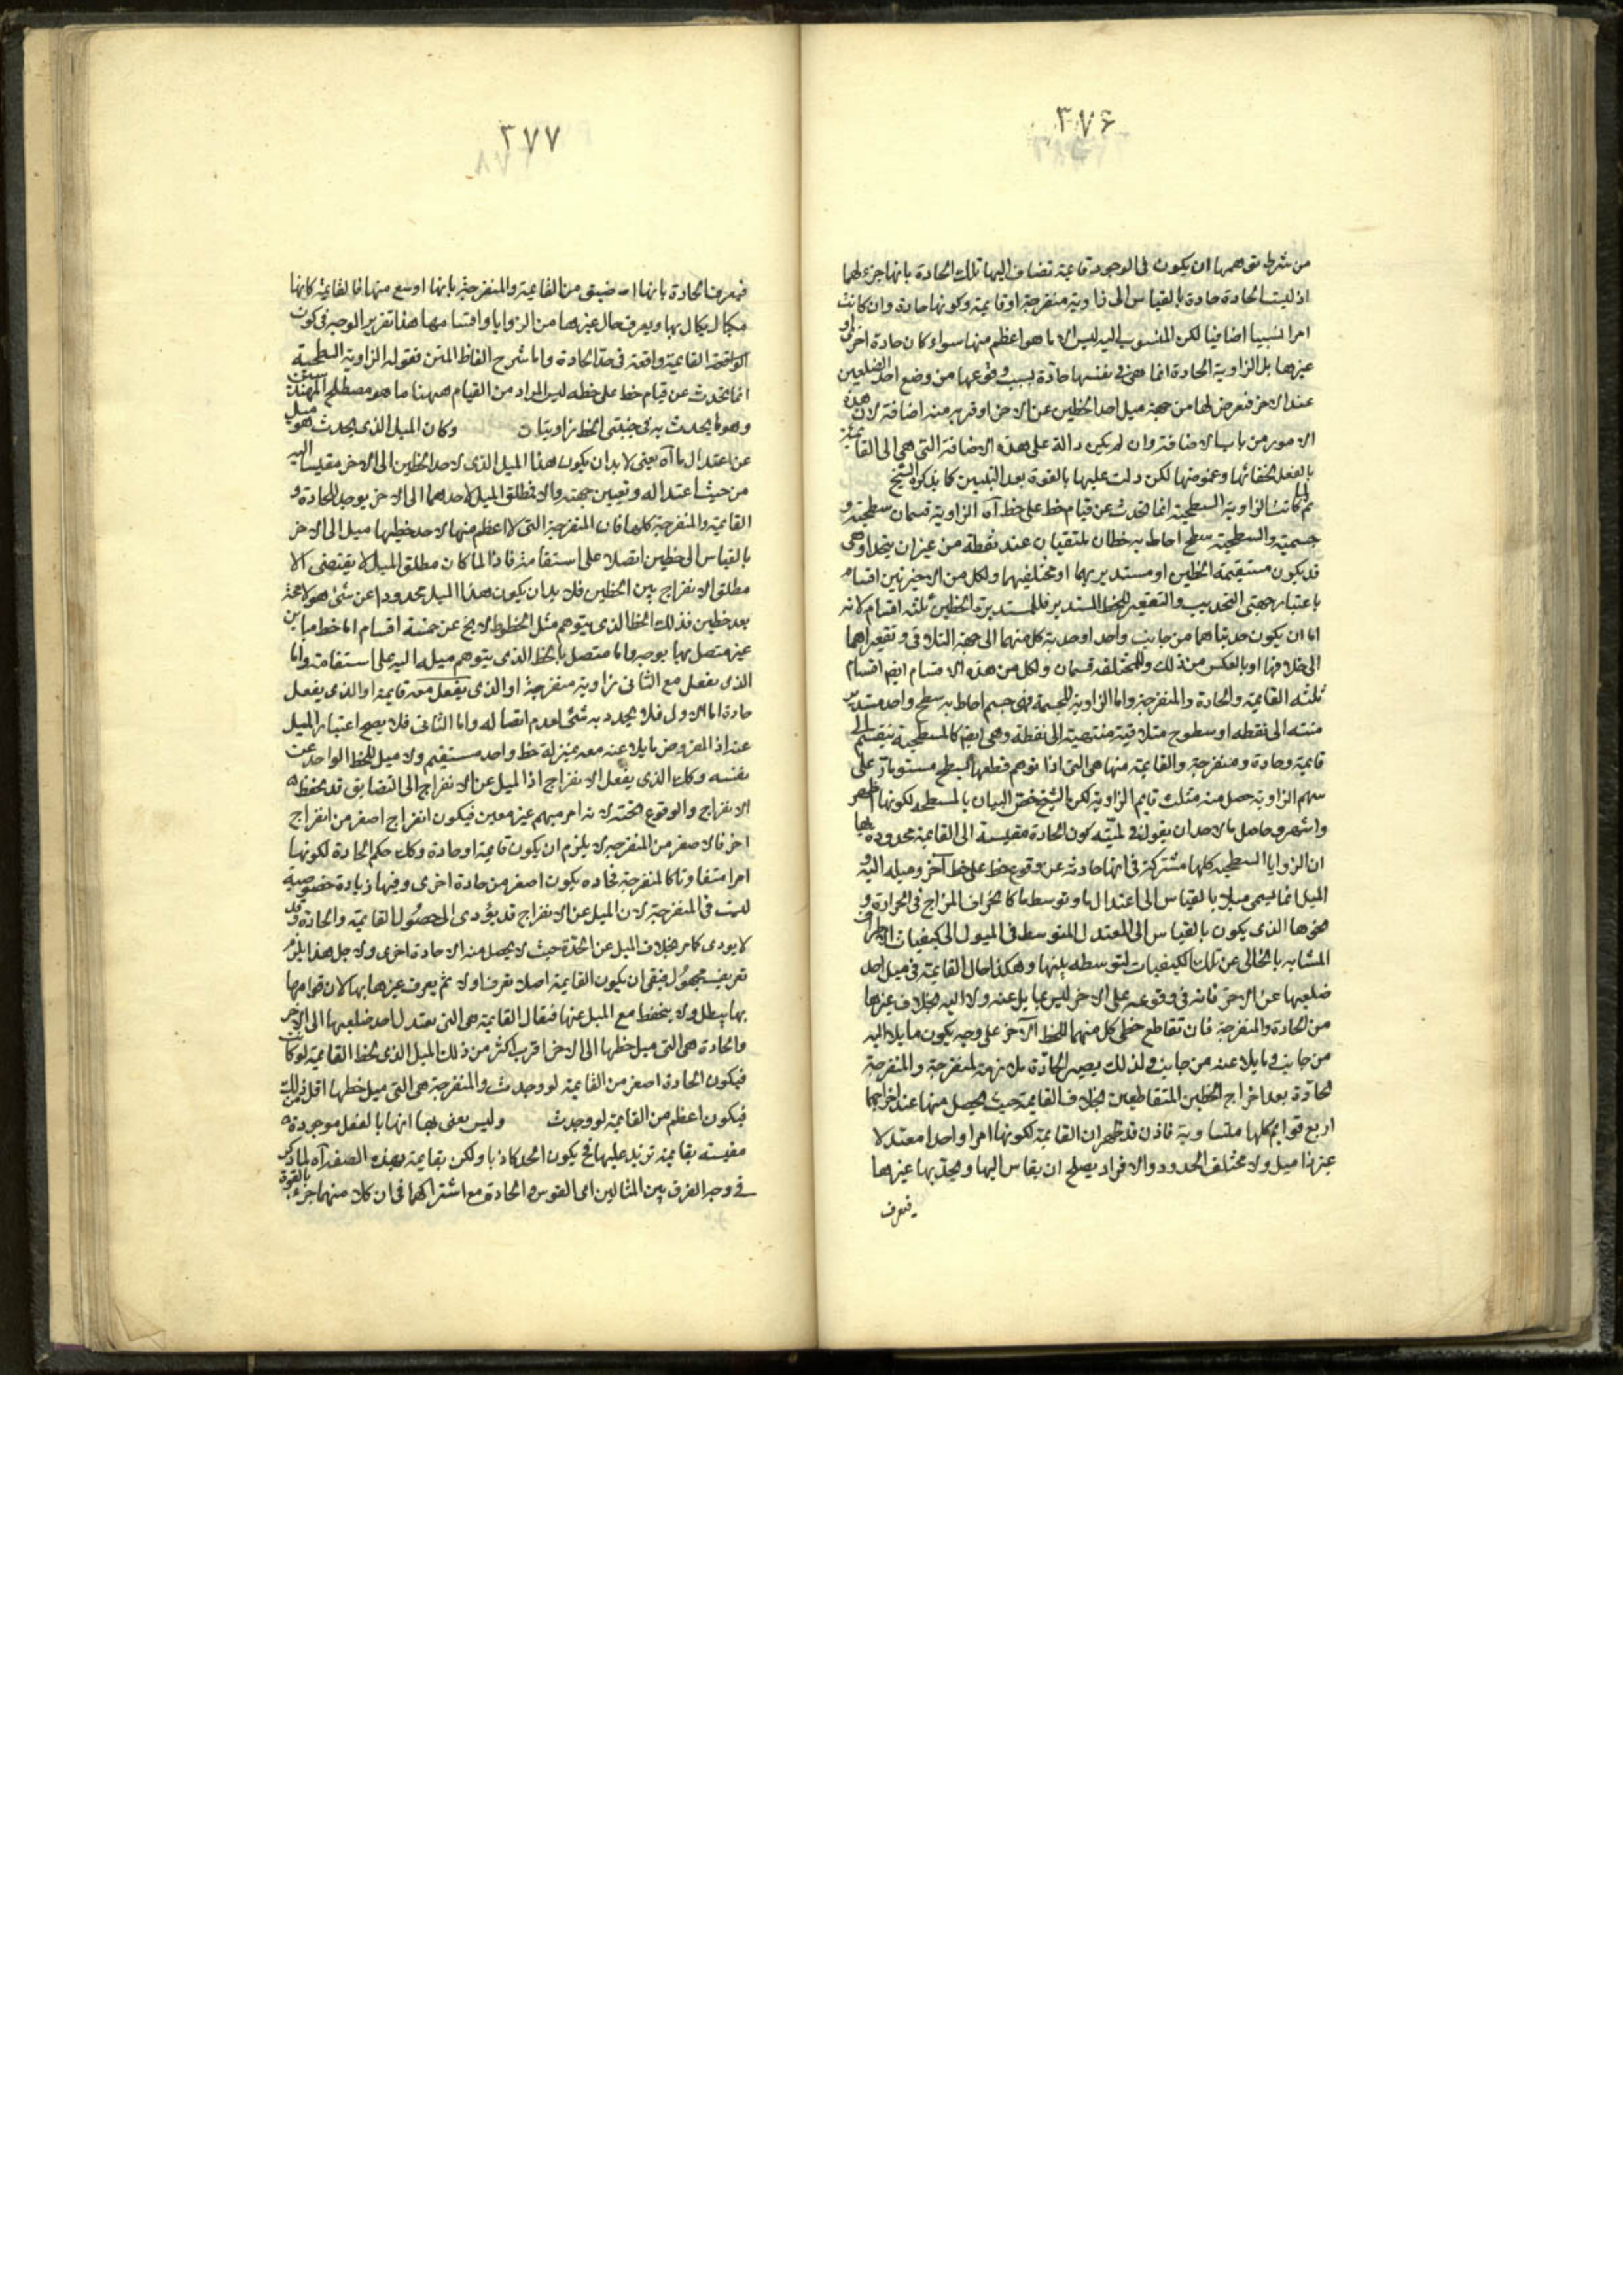 ٣٧۶
من شرط توهمها ان يكون فى الوجود قائمة تضاف اليها تلك الحادة بانها جزء لها
اذ ليست الحادة حادة بالقياس الى زاوية منفرجة او قايمة وكونها حادة وان كانت
امرا نسبيا اضافيا لكن المنسوب اليه ليس الا ما هو اعظم منها سواء كان حادة اخرى او
غيرها بل الزاوية الحادة انما هى فى نفسها حادة بسبب وقوعها من وضع احد الضلعين
عند الاخر فتعرض لها من جهة ميل احد الخطين عن الاخر او قربه منه اضافة لان هذه
الامور من باب الاضافة وان لم يكن دالة على هذه الاضافة التى هى الى القائمة
بالفعل لخفائها وغموضها لكن دلت عليها بالقوة بعد التبيين كما يذكره الشيخ
ثم لما كانت الزاوية السطحية انما تحدث عن قيام خط على خط آه الزاوية قسمان سطحية و
جسمية والسطحية سطح احاط به خطان يلتقيان عند نقطة من غير ان يتحدا وهى
قد يكون مستقيمة الخطين او مستديريهما او مختلفيهما ولكل من الاخيرتين اقسام
باعتبار جهتى التحديب والتقعير للخط المستدير فللمستديرة الخطين ثلثه اقسام لانه
اما ان يكون حدبتاهما من جانب واحد او حدبة كل منهما الى جهة التلاقى وتقعيراهما
الى خلافها او بالعكس من ذلك وللمختلفه قسمان ولكل من هذه الاقسام ايضا اقسام
ثلثه القائمة والحادة والمنفرجة واما الزاوية المجسمة فهى جسم احاط به سطح واحد مستدير
منته الى نقطه او سطوح متلاقية منتهية الى نقطة وهى ايضا كالمسطحية ينقسم الى
قايمة وحادة ومنفرجة والقايمة منها هى التى اذا توهم قطعها بسطح مستو مار على
سهم الزاوية حصل منه مثلث قايم الزاوية لكن الشيخ خص البيان بالمسطحه لكونها اظهر
واشهر وحاصل ما لاحد ان يقوله فى لميته كون الحادة مقيسة الى القايمة محدودة بها
ان الزوايا السطحية كلها مشتركة فى انها حادثه عن وقوع خط على خط آخر وميله اليه و
الميل انما يسمى ميلا بالقياس الى اعتدال ما وتوسط ما كانحراف المزاج فى الحرارة و
نحوها الذى يكون بالقياس الى المعتدل المتوسط فى الميول الى كيفيات الاطراف
المشابه بالخالى عن تلك الكيفيات لتوسطه بينها وهكذا حال القايمة فى ميل احد
ضلعيها عن الاخر فانه فى وقوعه على الاخر ليس بمايل عنه ولا اليه بخلاف غيرها
من الحادة والمنفرجة فان تقاطع خطى كل منهما للخط الآخر على وجه يكون مايلا اليه
من جانب ومايلا عنه من جانب ولذلك يصير الحادة ملازمة لمنفرجة والمنفرجة
لحادة بعد اخراج الخطين المتقاطعين بخلاف القايمة حيث يحصل منها عند اخراجهما
اربع قوايم كلها متساوية فاذن قد ظهر ان القايمة لكونها امرا واحدا معتدلا
غير ذا ميل ولا مختلف الحدود والافراد يصلح ان يقاس اليها ويحد بها غيرها
فيعرف
٣٧٧
فيعرف الحادة بانها اضيق من القايمة والمنفرجة بانها اوسع منها فالقايمة كانها
مكيال يكال بها ويعرف حال غيرها من الزوايا واقسامها هذا تقرير الوجه فى كون
القايمة واقعة فى حد الحادة واما شرح الفاظ المتن فقوله الزاوية السطحية
انما تحدث عن قيام خط على خط ليس المراد من القيام ههنا ما هو مصطلح المهندسين
وهو ما يحدث به فى جنبتى الخط زاويتان وكان الميل الذى يحدث هو ميل
عن اعتدال ما آه يعنى لابد ان يكون هذا الميل الذى لاحد الخطين الى الاخر مقيسا اليه
من حيث اعتداله وتعيين جهته والا فمطلق الميل لاحدهما الى الاخر يوجد للحادة و
القايمة والمنفرجة كلها فان المنفرجة التى لا اعظم منها لاحد خطيها ميل الى الاخر
بالقياس الى خطين اتصلا على استقامة فاذا لما كان مطلق الميل لا يقتضى الا
مطلق الانفراج بين الخطين فلابد ان يكون هذا الميل محدودا عن شئ هو لا محالة
بعد خطين فذلك الخط الذى يتوهم مثل الخطوط لا يخ عن خمسة اقسام اما خط مباين
غير متصل بها بوجه واما متصل بالخط الذى يتوهم ميله اليه على استقامة واما
الذى يفعل مع الثانى زاوية منفرجة او الذى يفعل معه قايمة او الذى يفعل
حادة اما الاول فلا يحدد به شئ لعدم اتصاله واما الثانى فلا يصح اعتبار الميل
عنه اذا المفروض مايلا عنه معه بمنزلة خط واحد مستقيم ولا ميل للخط الواحد عن
نفسه وكذا الذى يفعل الانفراج اذا الميل عن الانفراج الى التضايق قد يحفظه
الانفراج والوقوع تحته لانه امر مبهم غير معين فيكون انفراج اصغر من انفراج
اخر فالاصغر من المنفرجة لا يلزم ان يكون قايمة او حادة وكذا حكم الحادة لكونها
امرا متفاوتا كالمنفرجة فحاده يكون اصغر من حادة اخرى وفيها زيادة خصوصية
ليست فى المنفرجة لان الميل عن الانفراج قد يؤدى الى حصول القايمة والحادة وقد
لا يودى كما مر بخلاف الميل عن الحدة حيث لا يحصل منه الا حادة اخرى ولاجل هذا يلزم
تعريف مجهول فبقى ان يكون القايمة اصلا تعرف اولا ثم يعرف غيرها بها لان قوامها
بها يبطل ولا ينحفظ مع الميل عنها فيقال القايمة هى التى يعتدل احد ضلعيها الى الاخر
والحادة هى التى ميل خطها الى الاخر اقرب اكثر من ذلك الميل الذى لخط القايمة لو كانت
فيكون الحادة اصغر من القايمة لو وجدت والمنفرجة هى التى ميل خطها اقل من ذلك
فيكون اعظم من القايمة لو وجدت وليس يعنى بها انها بالفعل موجودة
مقيسة بقايمة تزيد عليها فح يكون الحد كاذبا ولكن بقايمة بهذه الصفة آه لما ذكر
فى وجه الفرق بين المثالين اى القوس والحادة مع اشتراكهما فى ان كلا منهما جزء بالقوة